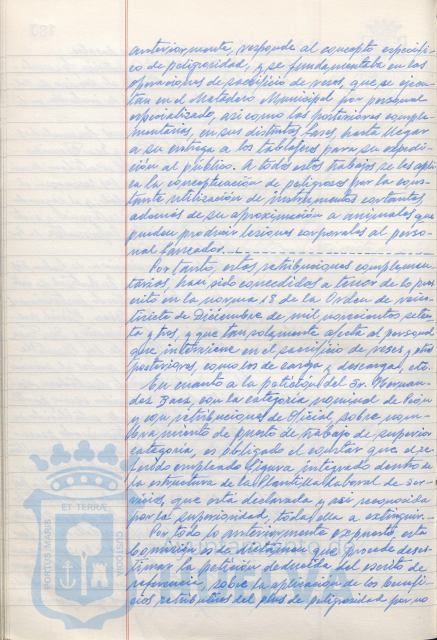 anteriormente, responde al concepto específi-
co de peligrosidad, y se fundamentaba en las
operaciones de sacrificio de reses, que se ejecu-
tan en el Matadero Municipal por personal
especializado, así como las posteriores comple-
mentarias, en sus distintas fases, hasta llegar
a su entrega a los tablajeros para su expedi-
ción al público. A todos estos trabajos, se les apli-
ca la conceptuación de peligrosos por la cons-
tante utilización de instrumentos cortantes,
además de su aproximación a animales que
pueden producir lesiones corporales al perso-
nal faenador.
Por tanto, estas retribuciones complemen-
tarias, han sido concedidas a tenor de lo pres-
crito en la norma 18 de la Orden de vein-
tisiete de Diciembre de mil novecientos seten-
ta y tres, y que tan solamente afecta al personal
que interviene en el sacrificio de reses y otras
posteriores, como los de carga y descarga, etc.
En cuanto a la petición del Sr. Hernan-
dez Baez, con la categoría nominal de Peón
y con retribuciones de Oficial, sobre nom-
bramiento de puesto de trabajo de superior
categoría, es obligado el constar que el re-
ferido empleado figura integrado dentro de
la estructura de la Plantilla Laboral de Ser-
vicios, que está declarada y así reconocida
por la superioridad, toda ella a extinguir.
Por todo lo anteriormente expuesto, esta
Comisión es de dictamen que procede deses-
timar la petición deducida del escrito de
referencia, sobre la aplicación de los benefi-
cios retributivos del plus de peligrosidad por no
ET TERRÆ
PORTUS MARIS
CUSTODIA